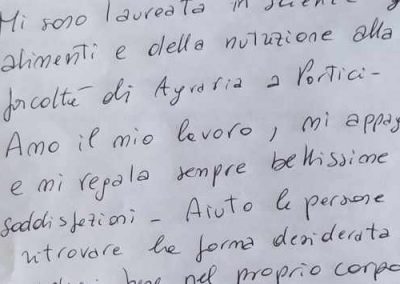 Mi sono laureata in scienze
alimenti e della nutrizione alla
facoltà di Agraria a Portici -
Amo il mio lavoro, mi appag
e mi regala sempre bellissime
soddisfazioni - Aiuto le persone
ritrovare la forma desiderata
bene nel proprio corpo